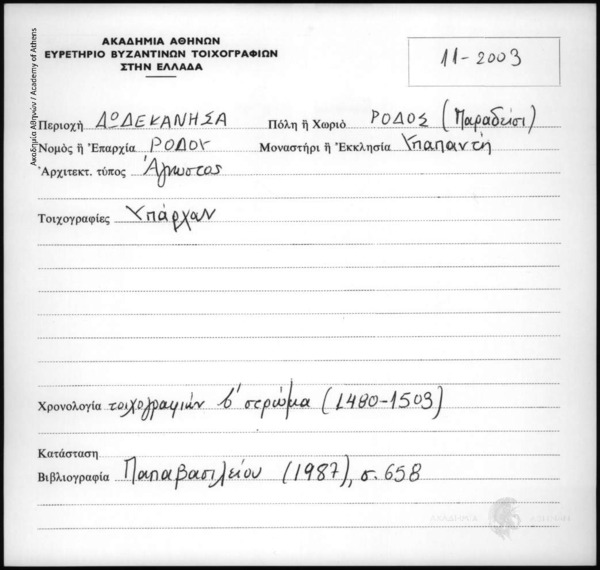 ΑΚΑΔΗΜΙΑ ΑΘΗΝΩΝ
ΕΥΡΕΤΗΡΙΟ ΒΥΖΑΝΤΙΝΩΝ ΤΟΙΧΟΓΡΑΦΙΩΝ
ΣΤΗΝ ΕΛΛΑΔΑ
11-2003
Ακαδημία Αθηνών / Academy of Athens
Περιοχὴ ΔΩΔΕΚΑΝΗΣΑ Πόλη ἢ Χωριὸ ΡΟΔΟΣ (Παραδείσι)
Νομὸς ἢ Ἐπαρχία ΡΟΔΟΥ Μοναστήρι ἢ Ἐκκλησία Υπαπαντή
Ἀρχιτεκτ. τύπος Άγνωστος
Τοιχογραφίες Υπάρχαν
Χρονολογία τοιχογραφιών β' στρώμα (1480-1503)
Κατάσταση
Βιβλιογραφία Παπαβασιλείου (1987), σ. 658
ΑΚΑΔΗΜΙΑ ΑΘΗΝΩΝ